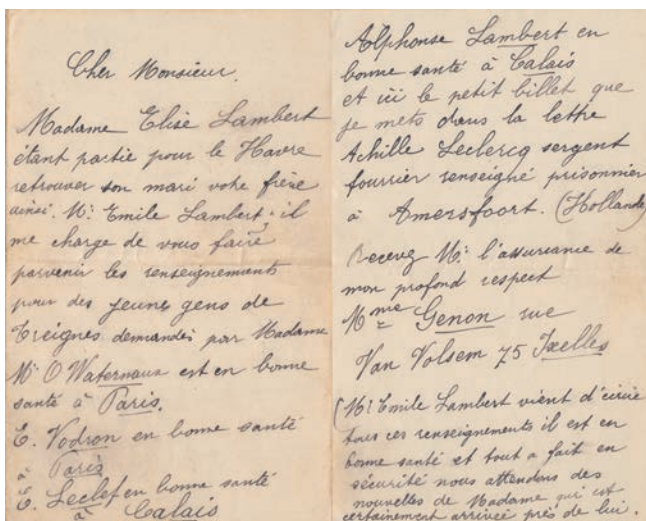 Cher Monsieur.
Madame Elise Lambert
étant partie pour le Havre
retrouver son mari votre frère
ainsi. Mr Emile Lambert, il
me charge de vous faire
parvenir les renseignements
pour des jeunes gens de
Treignes demandés par Madame
Mr O Waternaux est en bonne
santé à Paris.
E. Vodron en bonne santé
à Paris
E. Leclef en bonne santé
à Calais
Alphonse Lambert en
bonne santé à Calais
et ici le petit billet que
je mets dans la lettre
Achille Leclercq sergent
fourrier renseigné prisonnier
à Amersfoort. (Hollande)
Recevez Mr l'assurance de
mon profond respect
Mme Genon rue
Van Volsem 75 Ixelles
(Mr Emile Lambert vient d'écrire
tous ces renseignements il est en
bonne santé et tout a fait en
sécurité nous attendons des
nouvelles de Madame qui est
certainement arrivée près de lui.